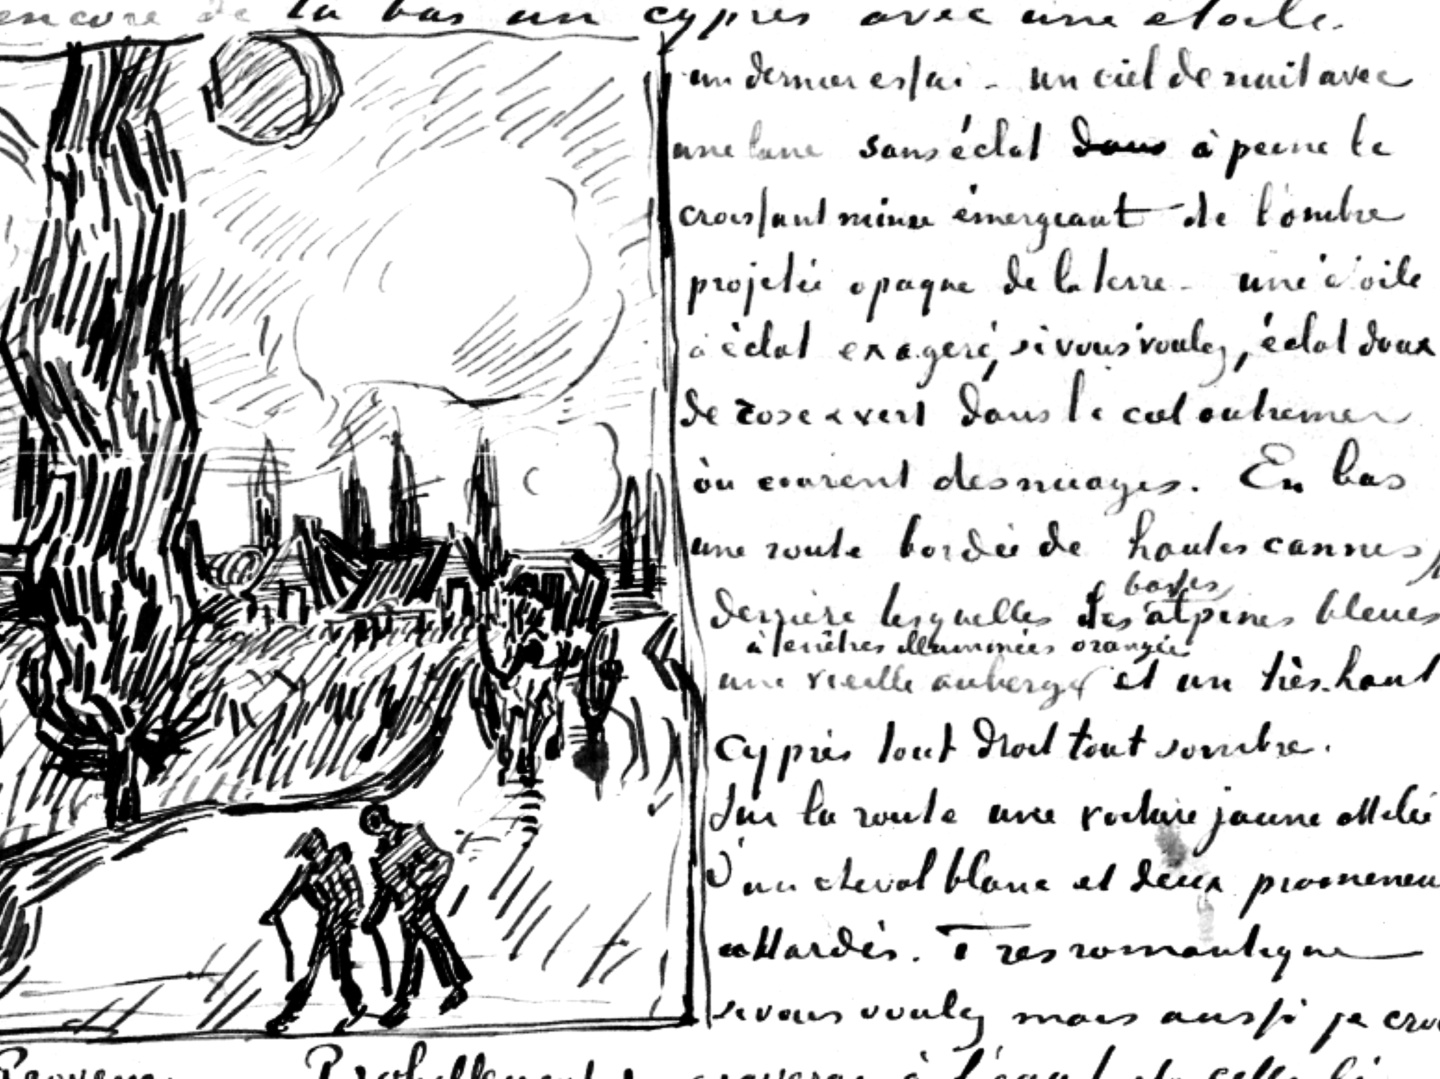 encore de là bas un cyprès avec une étoile.
un dernier essai - un ciel de nuit avec
une lune sans éclat dans à peine le
croissant mince émergeant de l'ombre
projetée opaque de la terre - une étoile
à éclat exageré, si vous voulez, éclat doux
de rose & vert dans le ciel outremer
où courent des nuages. En bas
une route bordée de hautes cannes
derrière lesquelles les basses alpines bleues
à fenêtres illuminées orangée
une vieille auberge et un très haut
cyprès tout droit tout sombre.
Sur la route une voiture jaune attelée
d'un cheval blanc et deux promeneu
attardés. Tres romantique
si vous voulez mais aussi je cro
Probablement à l'eau celle